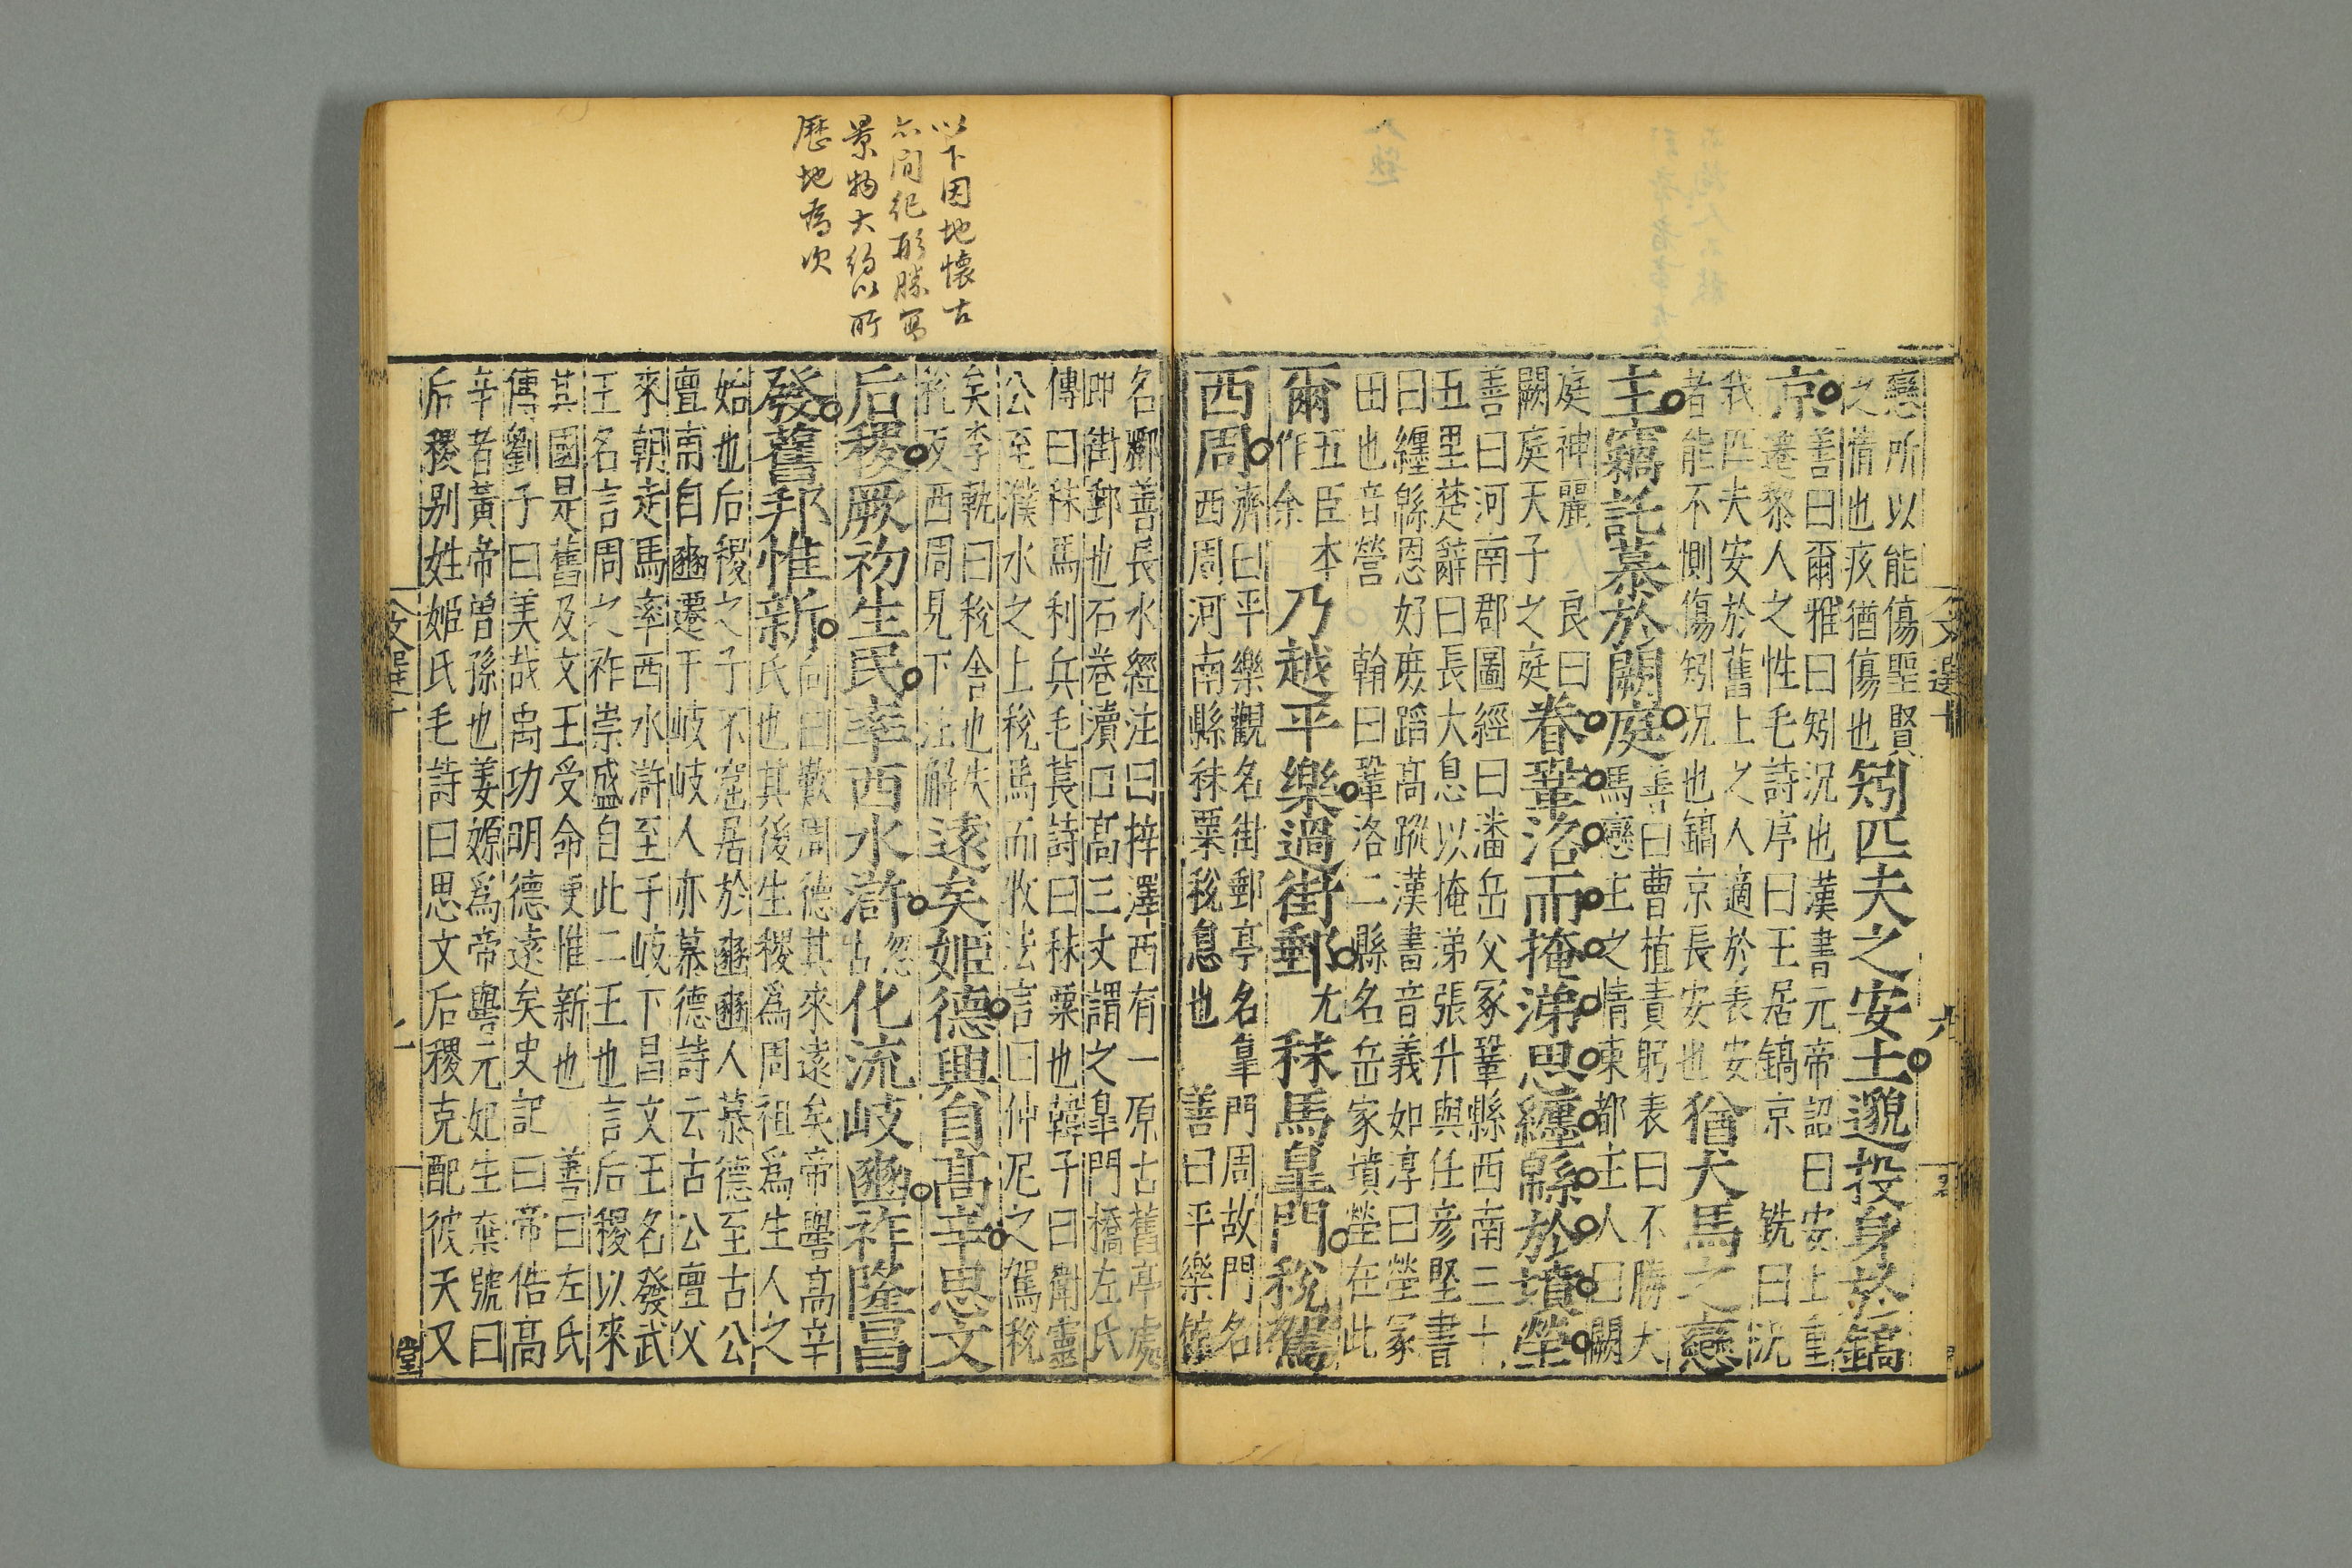 戀所以能傷聖賢
之情也疚猶傷也
矧匹夫之安土邈投身於鎬
京
善曰爾雅曰矧況也漢書元帝詔曰安土重
遷黎人之性毛詩序曰王居鎬京 銑曰況
我匹夫安於舊土之人適於表安
者能不惻傷矧況也鎬京長安也
猶犬馬之戀
主竊託慕於闕庭
善曰曹植責躬表曰不勝犬
馬戀主之情東都主人曰闕
庭神麗 良曰
闕庭天子之庭
眷鞏洛而掩涕思纏緜於墳塋
善曰河南郡圖經曰潘岳父冢鞏縣西南三十
五里楚辭曰長太息以掩涕張升與任彥堅書
曰纏緜恩好庶蹈高蹤漢書音義如淳曰塋冢
田也音營 翰曰鞏洛二縣名岳家墳塋在此
爾
五臣本
作余
乃越平樂過街郵
尤
秣馬皐門稅駕
西周
濟曰平樂觀名街郵亭名皐門周故門名
西周河南縣秣粟稅息也 善曰平樂館
名酈善長水經注曰梓澤西有一原古舊亭處
卽街郵也石巷瀆口高三丈謂之皐門橋左氏
傳曰秣馬利兵毛萇詩曰秣粟也韓子曰衛靈
公至濮水之上稅馬而牧法言曰仲尼之駕稅
矣李軌曰稅舍也失
稅反西周見下注解
遠矣姬德興自高辛思文
后稷厥初生民率西水滸
忽
古
化流岐豳祚隆昌
發舊邦惟新
向曰歎周德其來遠矣帝嚳高辛
氏也其後生稷爲周祖爲生人之
始也后稷之子不窋居於豳豳人慕德至古公
亶甫自豳遷于岐岐人亦慕德詩云古公亶父
來朝走馬率西水滸至于岐下昌文王名發武
王名言周之祚崇盛自此二王也言后稷以來
其國是舊及文王受命更惟新也 善曰左氏
傳劉子曰美哉禹功明德遠矣史記曰帝俈高
辛者黃帝曾孫也姜嫄爲帝嚳元妃生棄號曰
后稷别姓姬氏毛詩曰思文后稷克配彼天又
文選十
六
文選十
以下因地懷古
亦間紀形勝寫
景物大約以所
歷地爲次